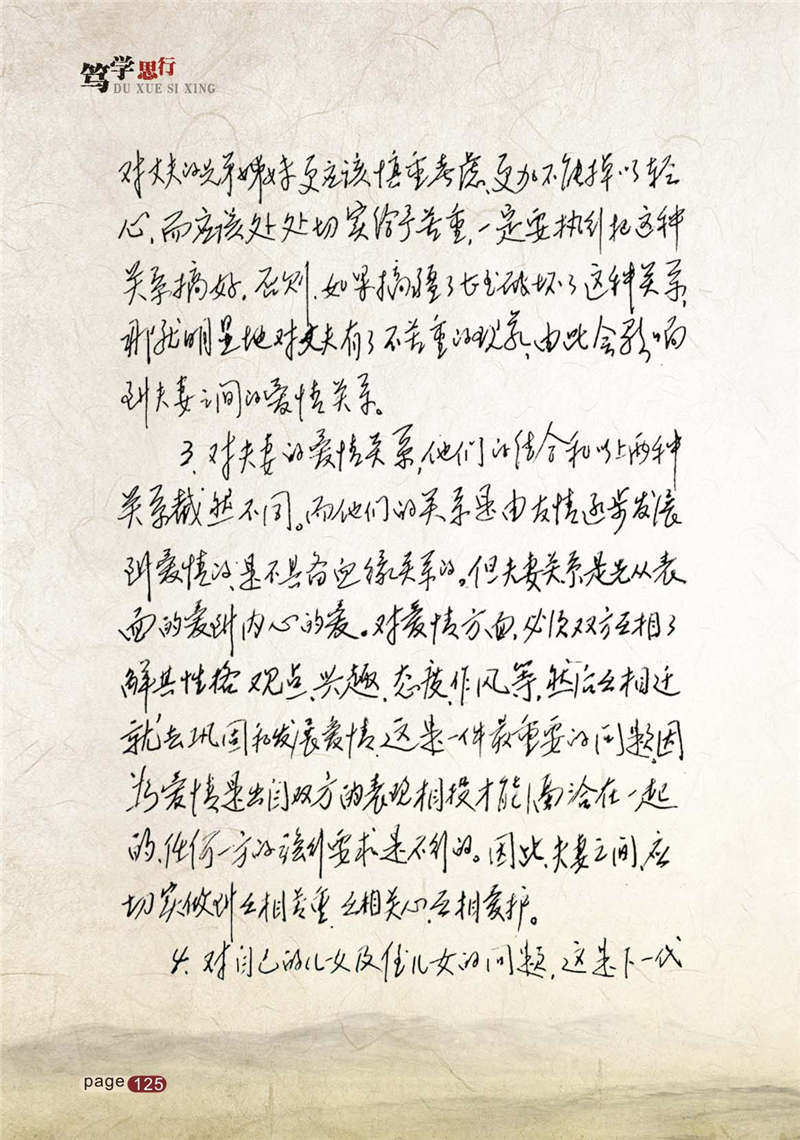 笃学思行
DU XUE SI XING
对丈夫的兄弟姊妹更应该慎重考虑,更加不能掉以轻
心,而应该处处切实给予尊重,一定要执行把这种
关系搞好。否则,如果搞疆了甚至破坏了这种关系,
那就明显地对丈夫有了不尊重的现象,由此会影响
到夫妻之间的爱情关系。
3、对夫妻的爱情关系,他们的结合和以上两种
关系截然不同。而他们的关系是由友情逐步发展
到爱情的,是不具备血缘关系的。但夫妻关系是先从表
面的爱到内心的爱。对爱情方面,必须双方互相了
解其性格、观点、兴趣、态度、作风等,然后互相迁
就去巩固和发展爱情,这是一件最重要的问题,因
为爱情是出自双方的表现相投才能融洽在一起
的,任何一方的强制要求是不行的。因此,夫妻之间,应
切实做到互相尊重,互相关心,互相爱护。
4、对自己的儿女及侄儿女的问题,这是下一代
page 125